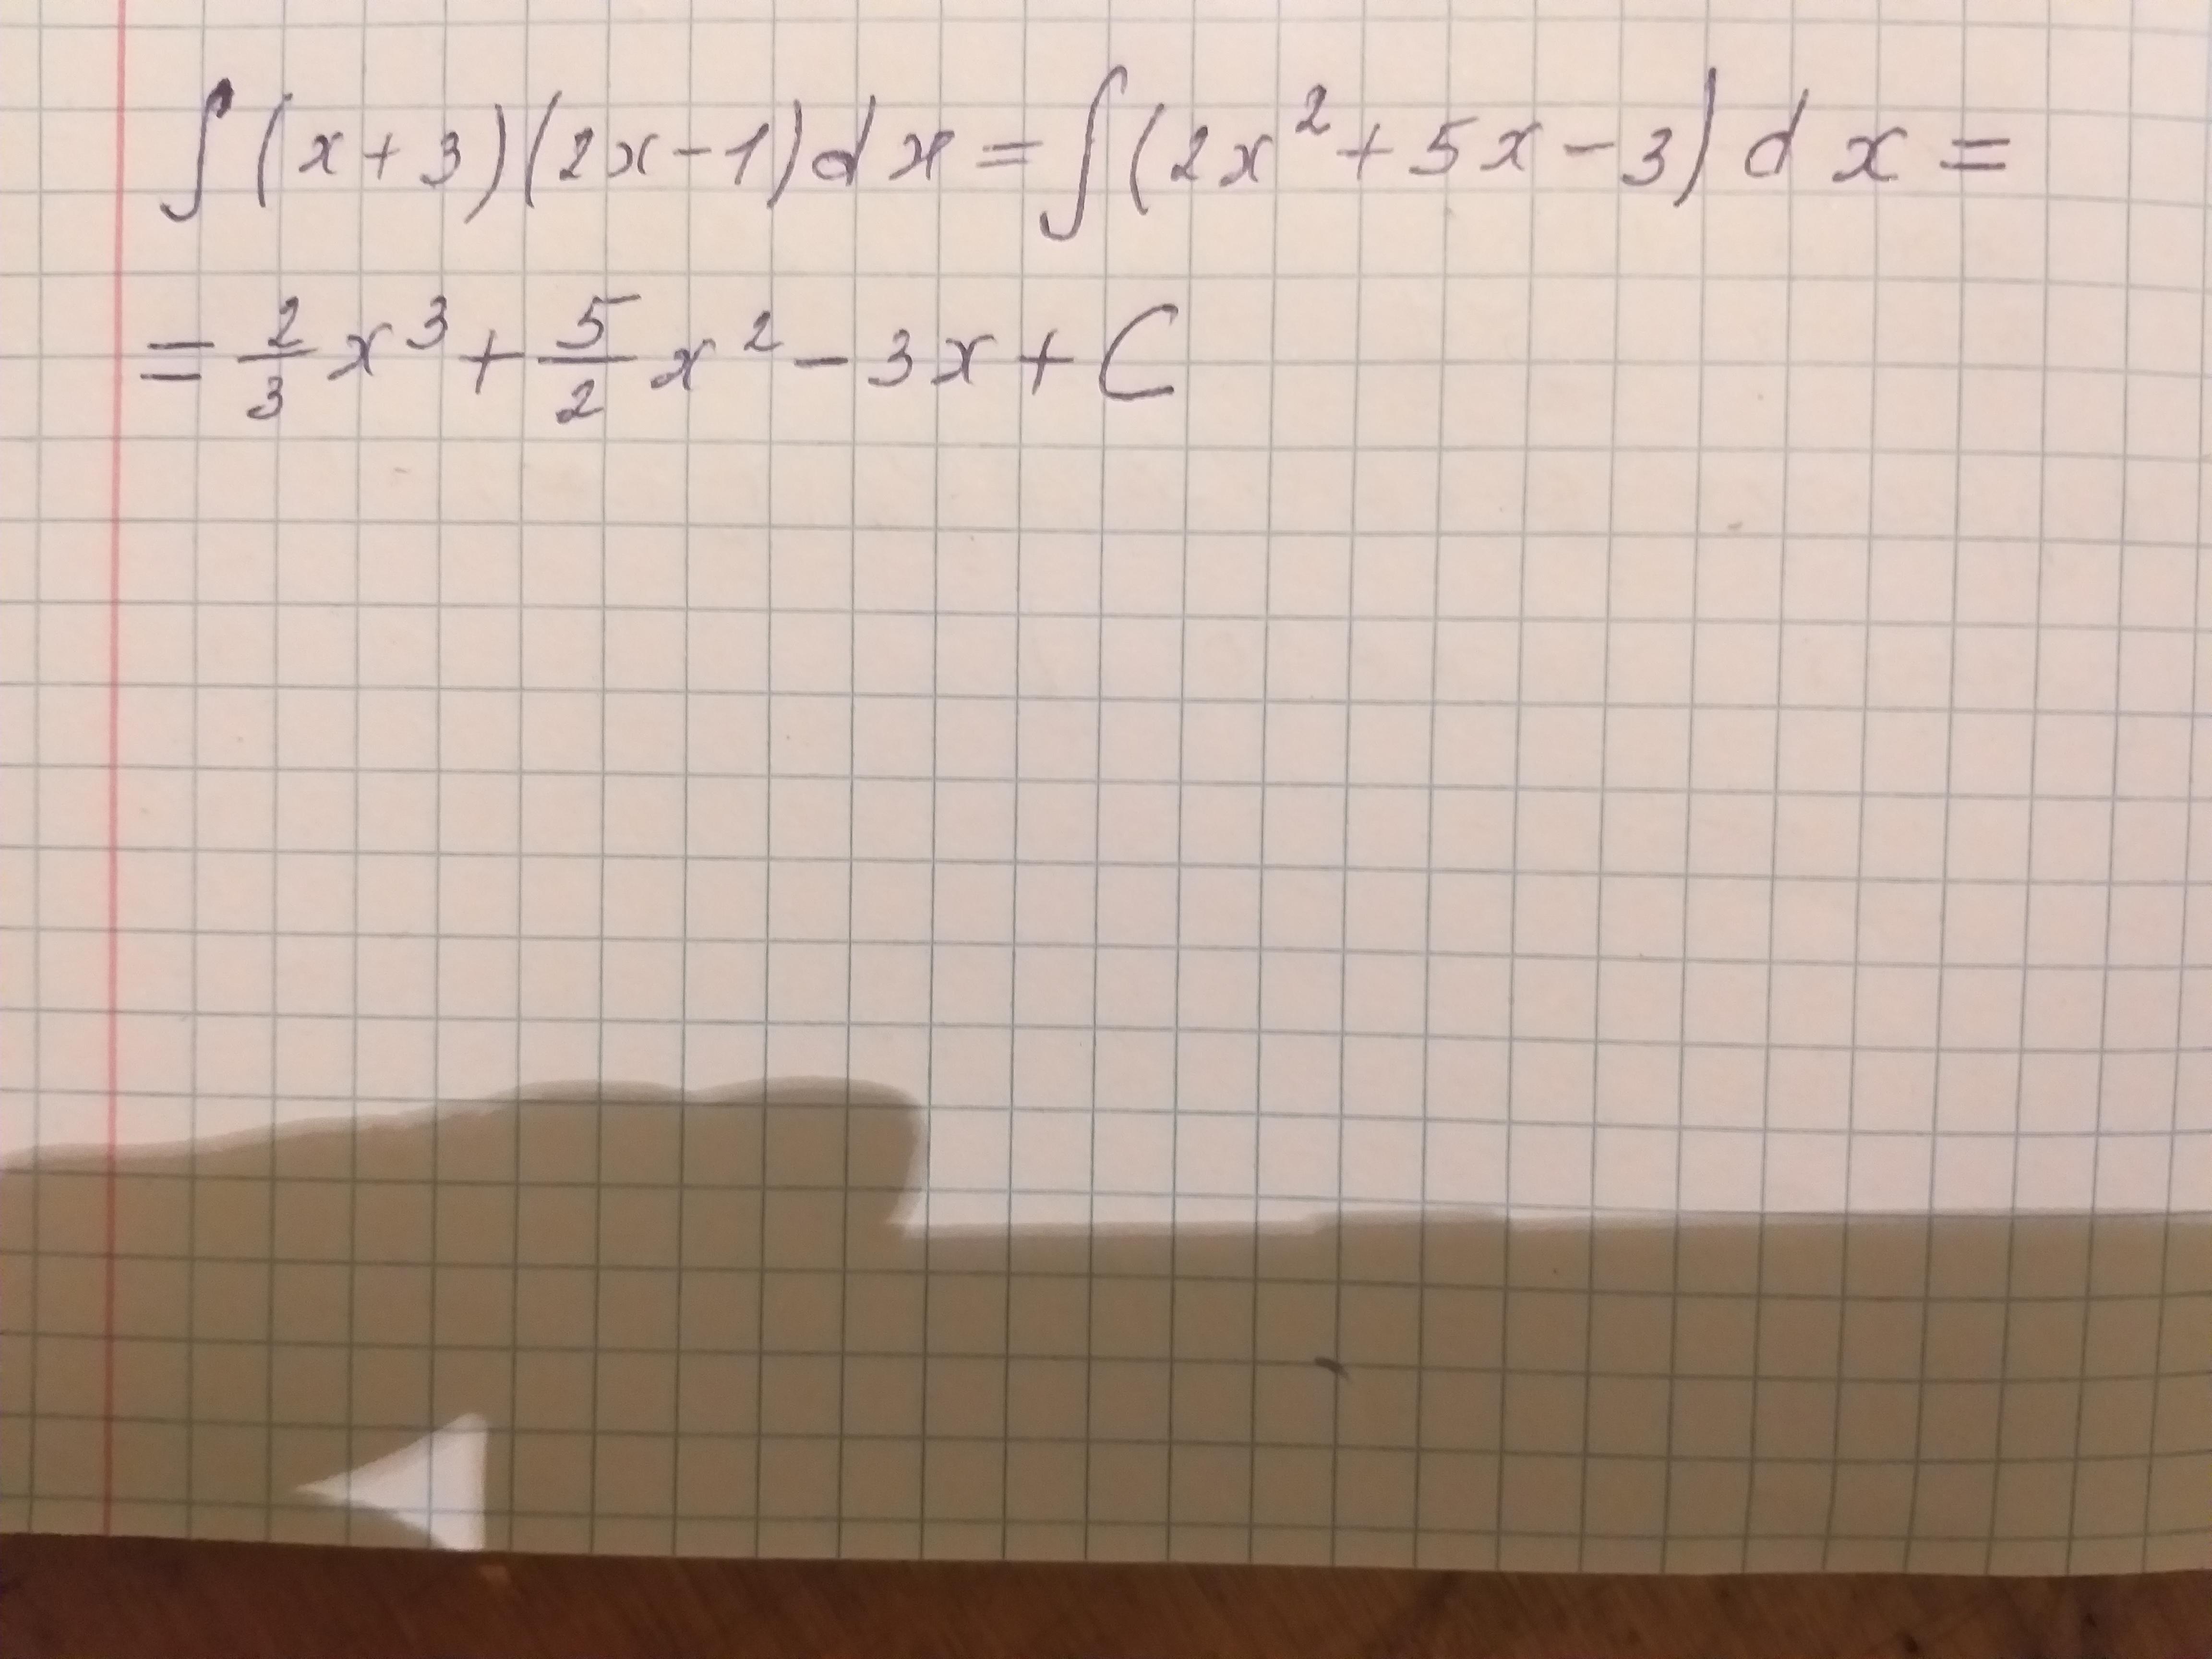 ∫(x+3)(2x-1)dx=∫(2x²+5x-3)dx=
=2/3x³+5/2x²-3x+C